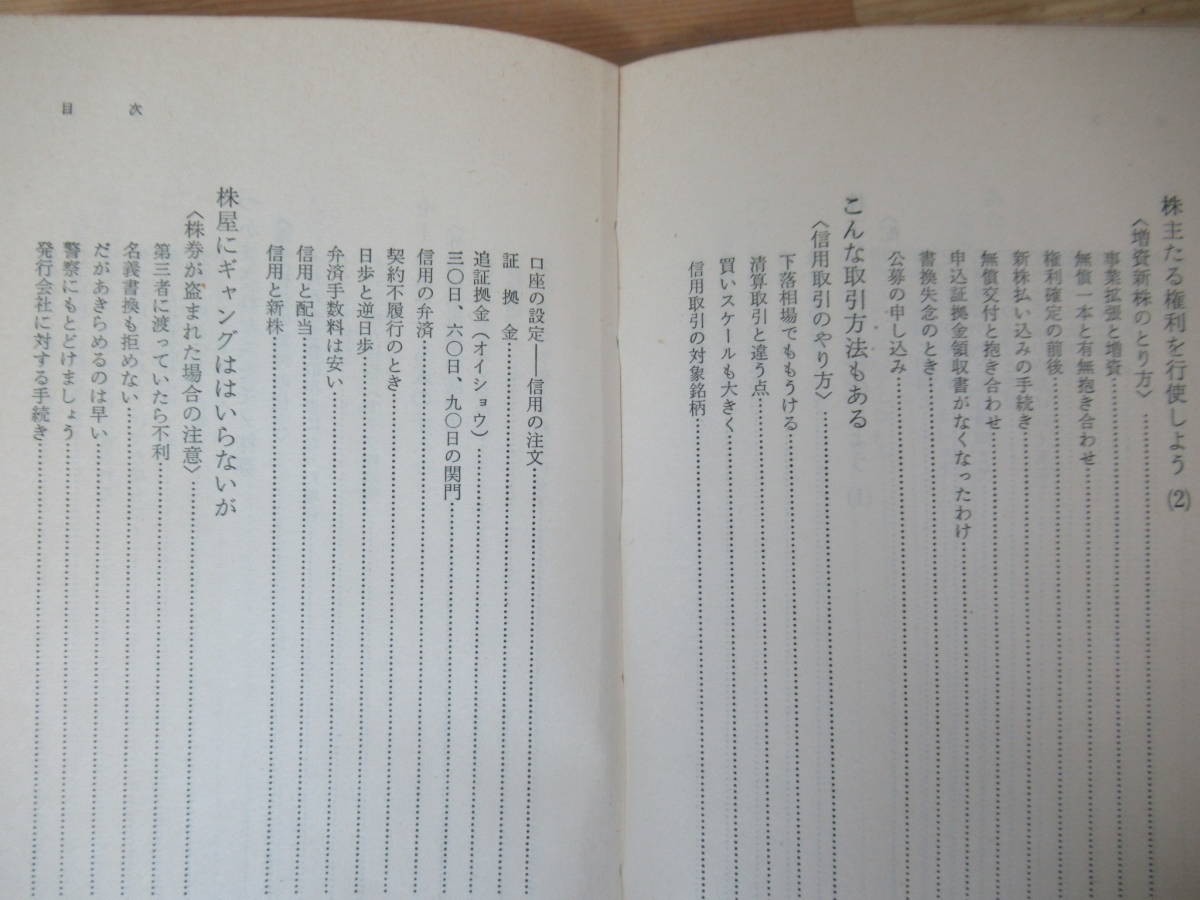 株主たる権利を行使しよう (2)
〈増資新株のとり方〉
事業拡張と増資
無償一本と有無抱き合わせ
権利確定の前後
新株払い込みの手続き
無償交付と抱き合わせ
申込証拠金領収書がなくなったわけ
書換失念のとき
公募の申し込み
こんな取引方法もある
〈信用取引のやり方〉
下落相場でももうける
清算取引と違う点
買いスケールも大きく
信用取引の対象銘柄
目次
口座の設定――信用の注文
証拠金
追証拠金(オイショウ)
三〇日、六〇日、九〇日の関門
信用の弁済
契約不履行のとき
日歩と逆日歩
弁済手数料は安い
信用と配当
信用と新株
株屋にギャングははいらないが
〈株券が盗まれた場合の注意〉
第三者に渡っていたら不利
名義書換も拒めない
だがあきらめるのは早い
警察にもとどけましょう
発行会社に対する手続き